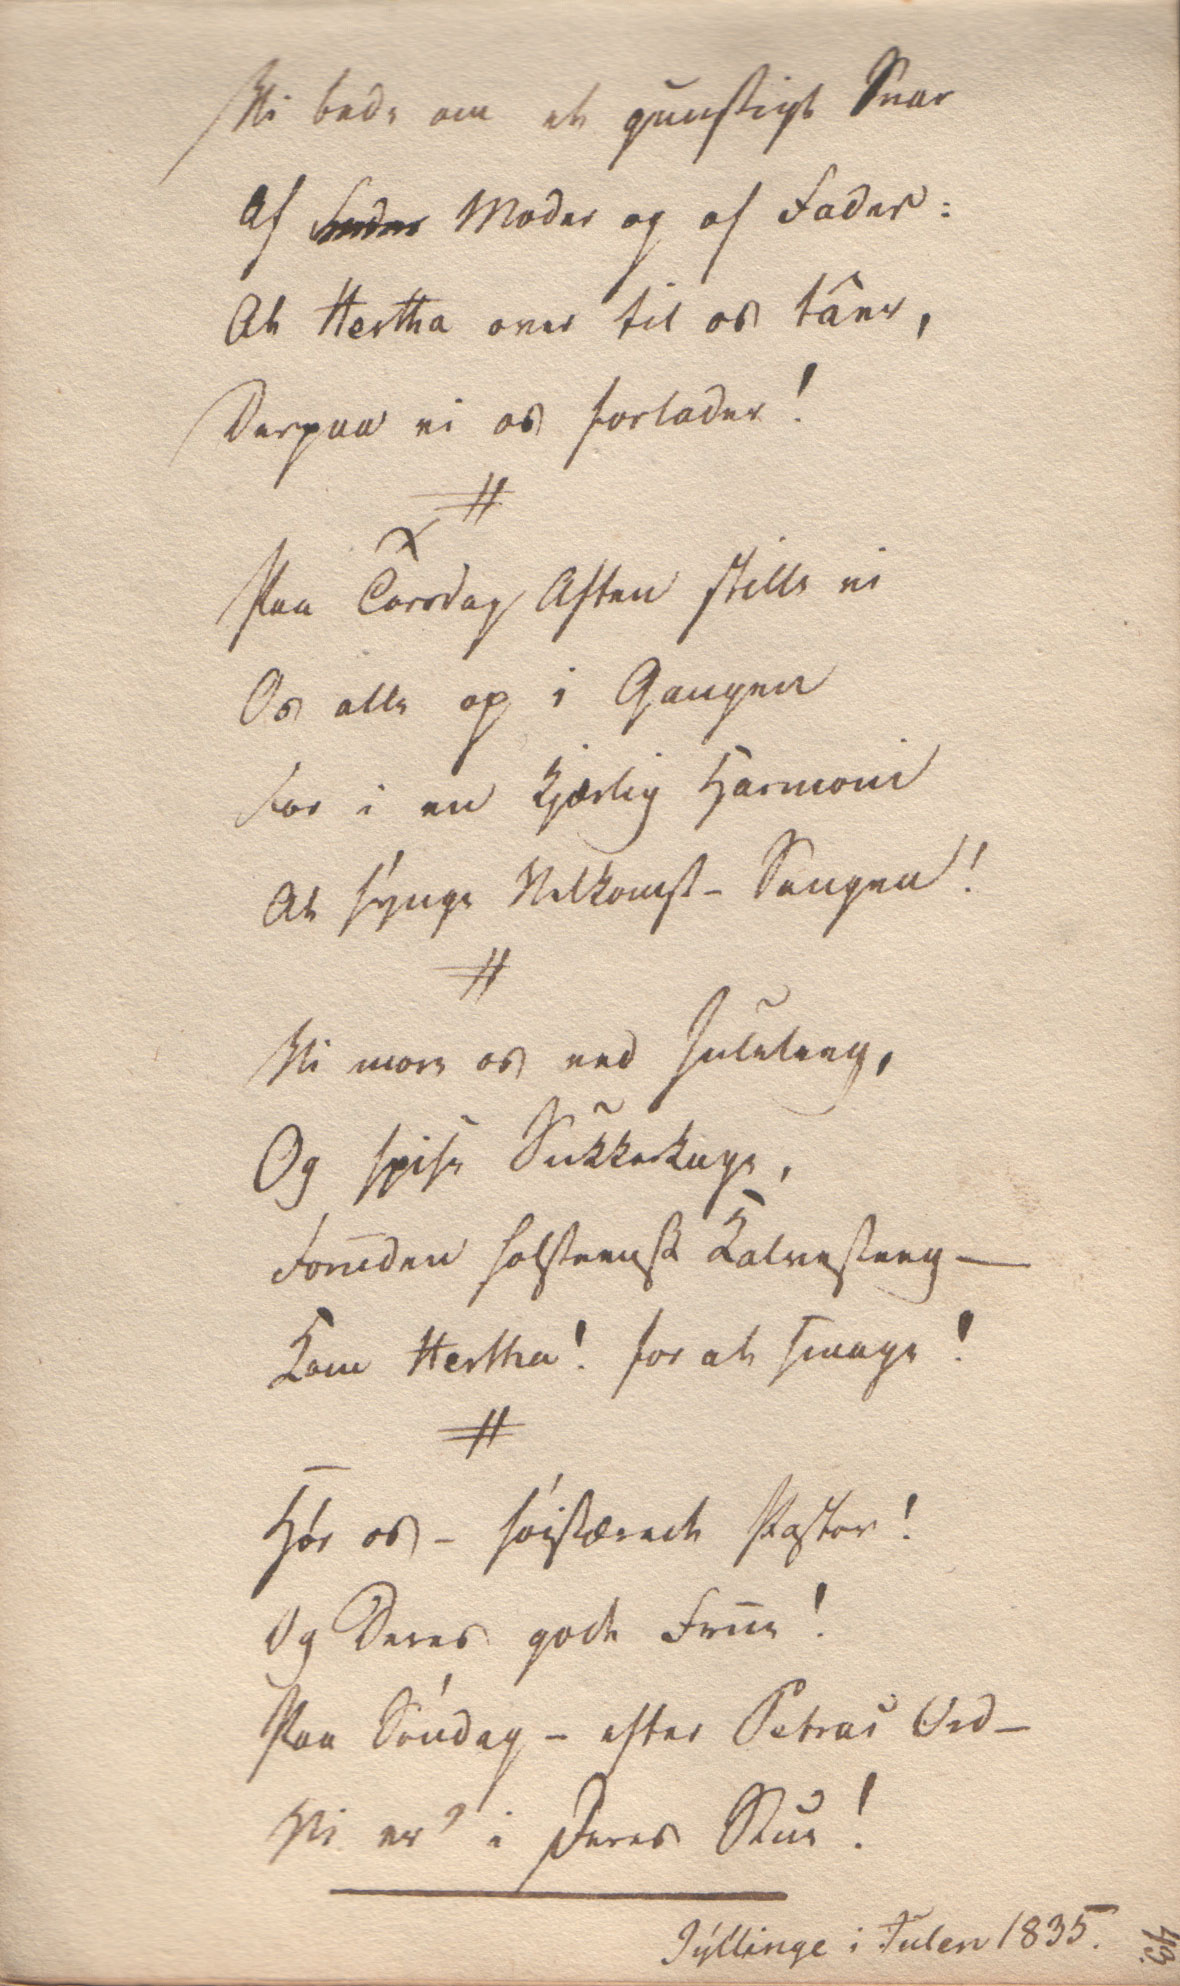 Vi bede om et gunstigt Svar
Af Fader Moder og af Fader:
At Hertha over til os tâer,
Derpaa vi os forlader!
#
Paa Torsdag Aften stille vi
Os alle op i Gangen
For i en kjærlig Harmoni
At synge Velkomst-Sangen!
#
Vi more os ved Juleleeg,
Og spise Sukkerkage,
Foruden holsteensk Kalvesteeg –
Kom Hertha! for at smage!
#
Hør os – høistærede Pastor!
Og Deres gode Frue!
Paa Søndag – efter Petras Ord –
Vi er' i Deres Stue!
Jyllinge i Julen 1835.
43.